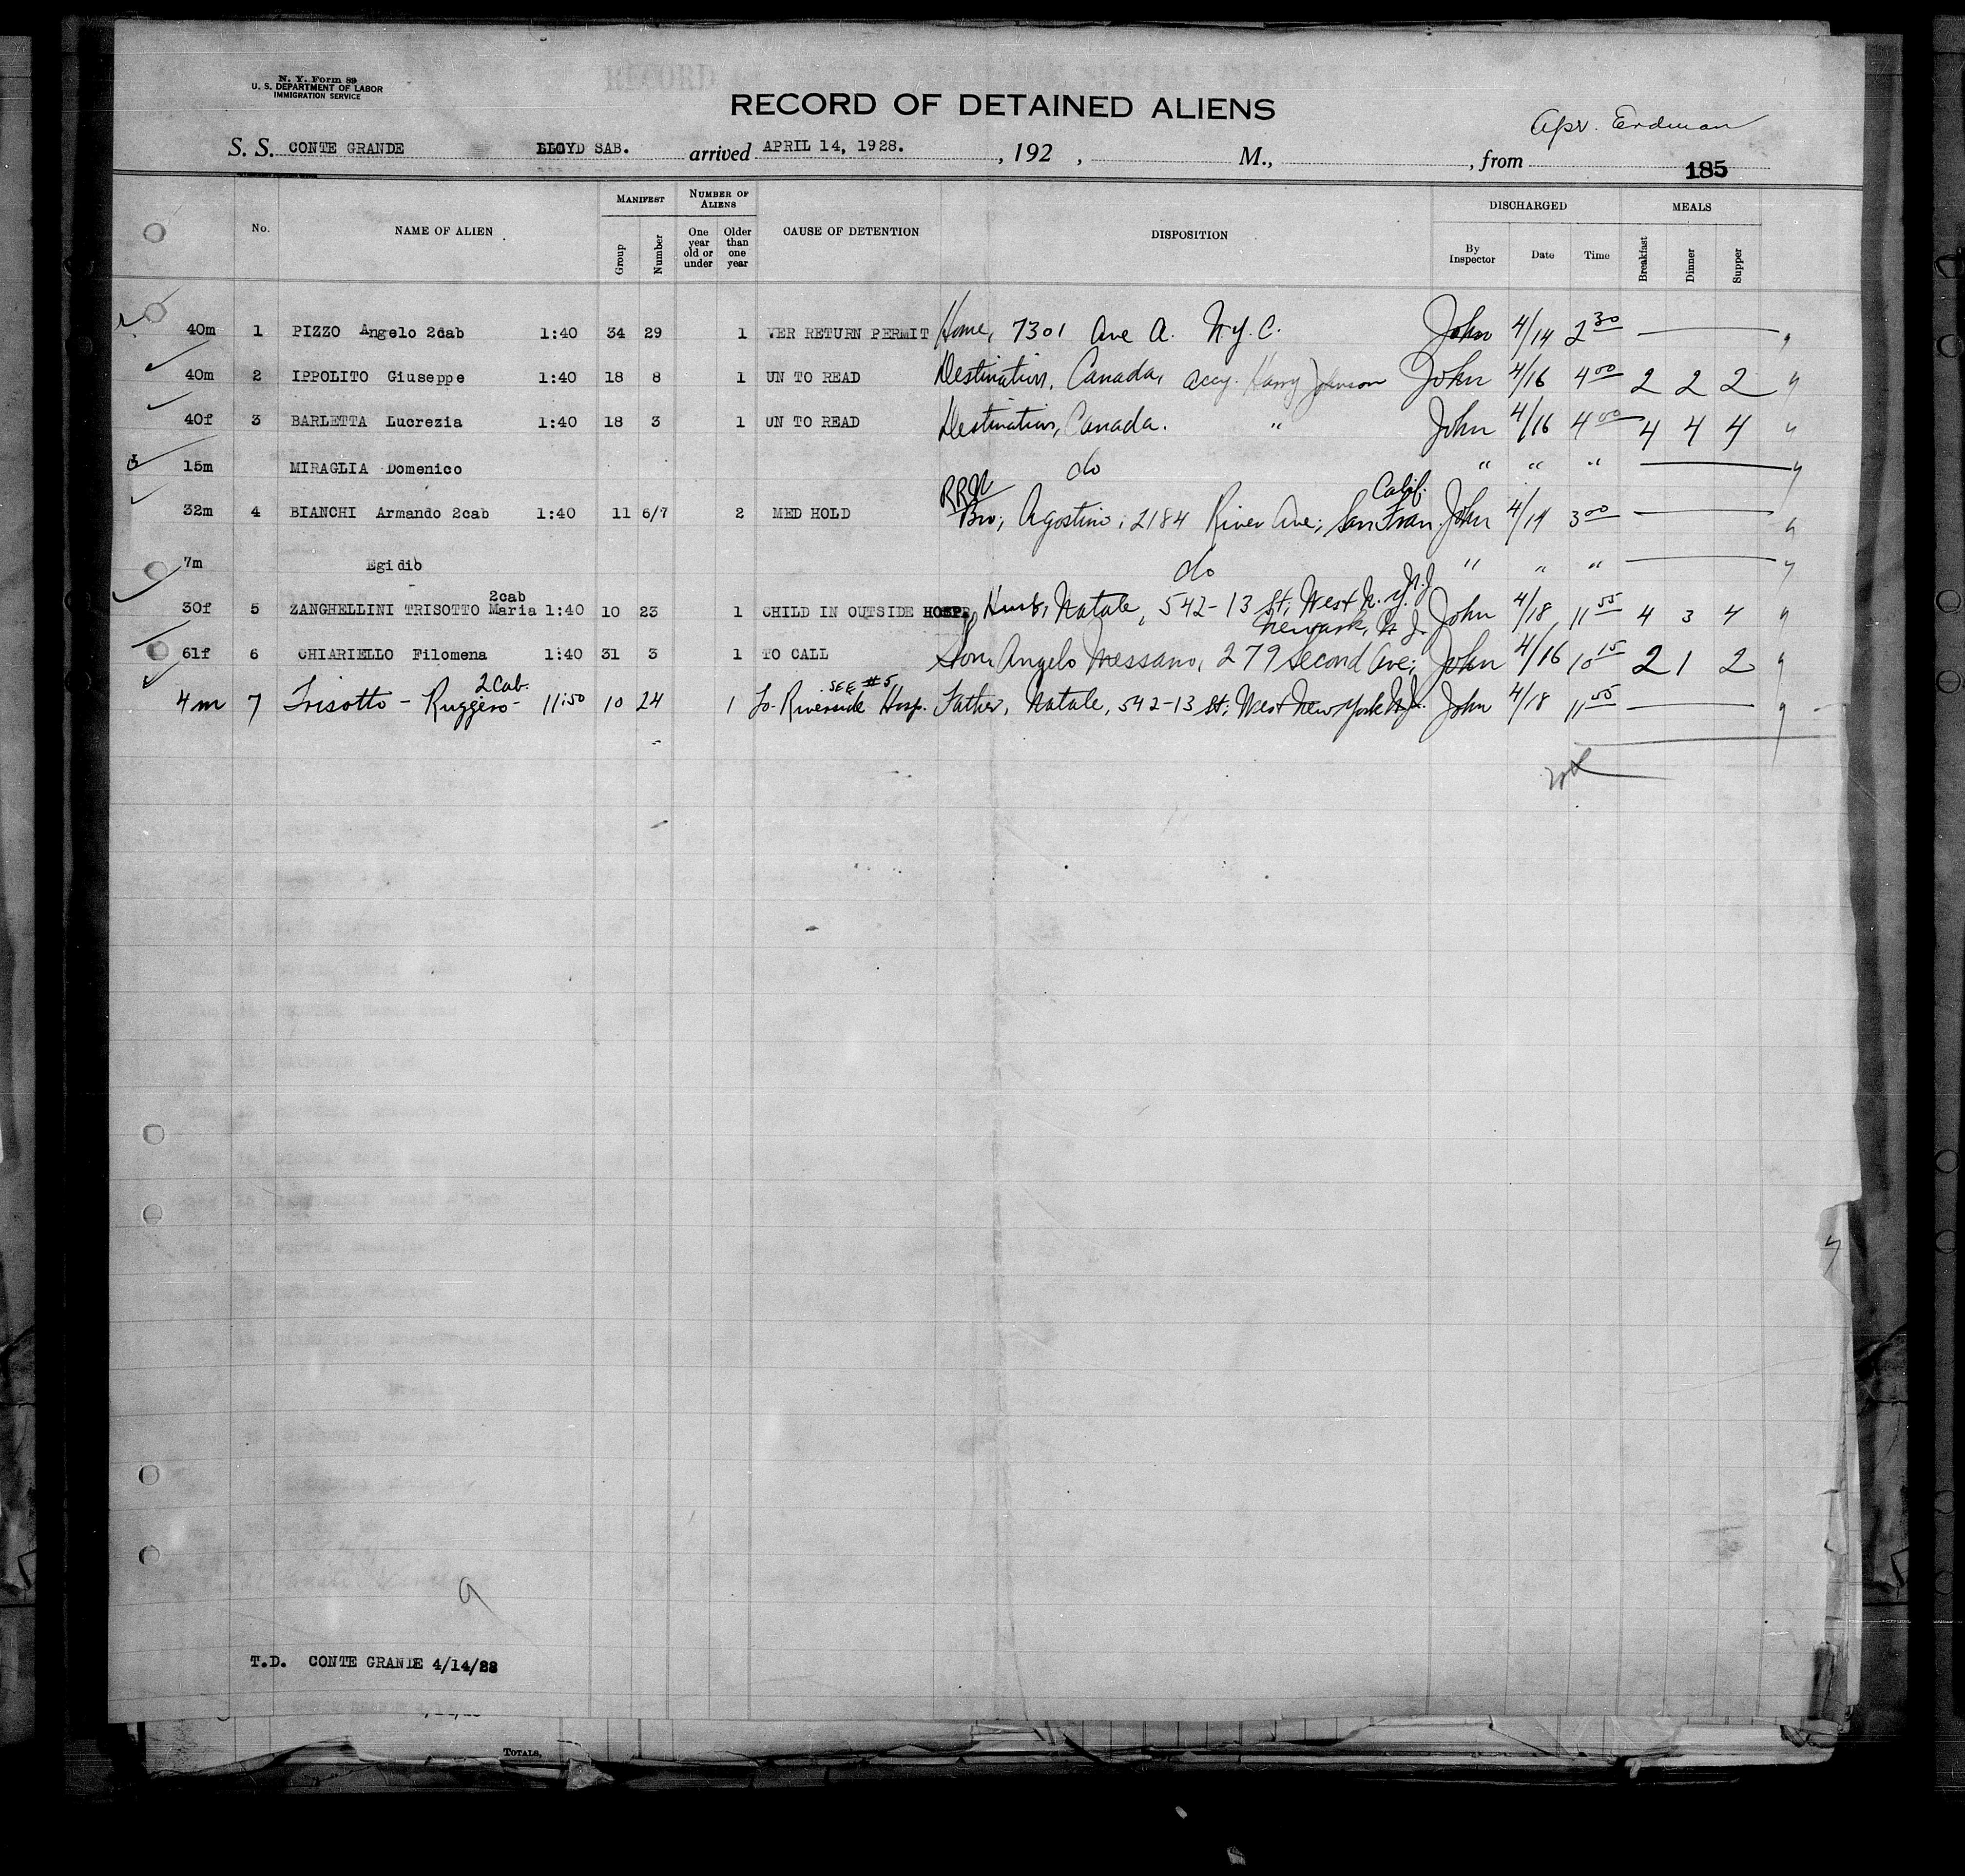 N. Y. Form 89
U. S. DEPARTMENT OF LABOR
IMMIGRATION SERVICE
RECORD OF DETAINED ALIENS
Apr. Erdman
S. S. CONTE GRANDE LLOYD SAB. arrived APRIL 14, 1928. , 192 , M., , from
185
No. NAME OF ALIEN MANIFEST Group Number NUMBER OF ALIENS One year old or under Older than one year CAUSE OF DETENTION DISPOSITION DISCHARGED By Inspector Date Time MEALS Breakfast Dinner Supper
40m 1 PIZZO Angelo 2cab 1:40 34 29 1 VER RETURN PERMIT Home, 7301 Ave A. N.Y.C. John 4/14 2 30
40m 2 IPPOLITO Giuseppe 1:40 18 8 1 UN TO READ Destination, Canada, accy. Harry Johnson John 4/16 4 00 2 2 2
40f 3 BARLETTA Lucrezia 1:40 18 3 1 UN TO READ Destination, Canada. " John 4/16 4 00 4 4 4
15m MIRAGLIA Domenico do " " "
32m 4 BIANCHI Armando 2cab 1:40 11 6/7 2 MED HOLD Bro; Agostino, 2184 River Ave; San Fran. Calif. John 4/14 3 00
7m Egidio do " " "
30f 5 ZANGHELLINI TRISOTTO Maria 2cab 1:40 10 23 1 CHILD IN OUTSIDE HOSP. Husb, Natale, 542-13 St, West N.Y. N.J. Newark, N.J. John 4/18 11 55 4 3 4
61f 6 CHIARIELLO Filomena 1:40 31 3 1 TO CALL Son Angelo Messano, 279 Second Ave; John 4/16 10 15 2 1 2
4m 7 Trisotto - Ruggero - 2 Cab. 11:50 10 24 1 To Riverside Hosp. SEE #5 Father, Natale, 542-13 St, West New York N.J. John 4/18 11 55
T.D. CONTE GRANDE 4/14/28
TOTALS,